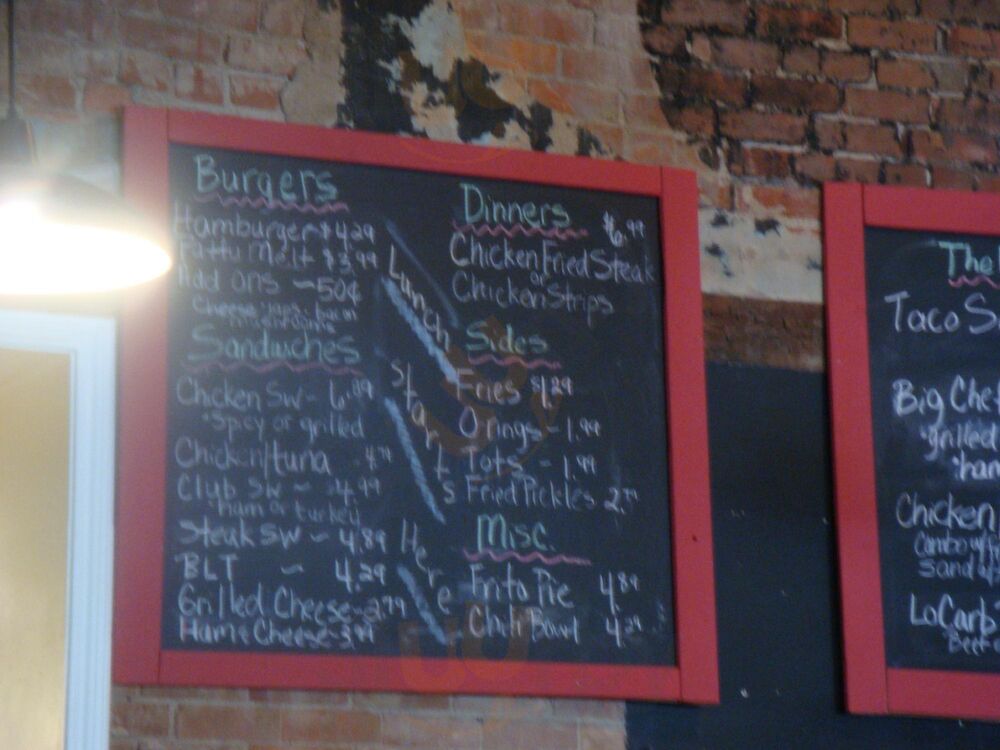 Burgers
Hamburger $4.29
Patty Melt $3.99
Add ons ~ 50¢
Cheese, japs, bacon
mushrooms
Sandwiches
Chicken Sw - 6.89
*Spicy or grilled
Chicken/tuna - 4.79
Club Sw - 4.99
*ham or turkey
Steak SW - 4.89
BLT ~ 4.29
Grilled Cheese - 2.79
Ham & Cheese - 3.99
Lunch
Starts
Here
Dinners
$6.99
Chicken Fried Steak
or
Chicken Strips
Sides
Fries $1.29
O rings - 1.99
Tots - 1.99
Fried Pickles
Misc.
Frito Pie 4.89
Chili Bowl 4.29
The
Taco S
Big Che
*grilled
*ham
Chicken
Sand
LoCarb
Beef